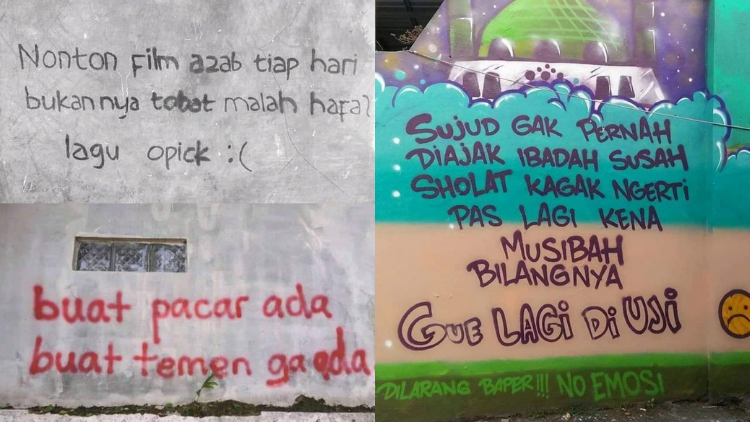 Nonton film azab tiap hari
bukannya tobat malah hafal
lagu opick :(
buat pacar ada
buat temen ga ada
SUJUD GAK PERNAH
DIAJAK IBADAH SUSAH
SHOLAT KAGAK NGERTI
PAS LAGI KENA
MUSIBAH
BILANGNYA
GUE LAGi Di UJi
DILARANG BAPER!!! NO EMOSi